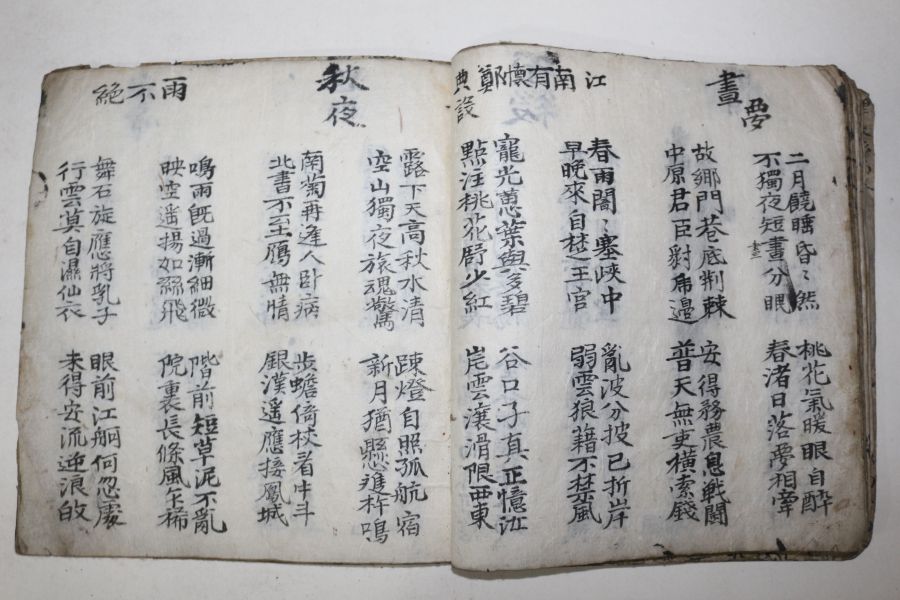 晝夢
二月饒睡昏〻然
不獨夜短晝分眠
晝
桃花氣暖眼自醉
春渚日落夢相牽
故鄉門巷底荆棘
中原君臣豺虎邊
安得務農息戦鬪
普天無吏橫索錢
江南有懷鄭典設
春雨闇〻塞峽中
早晚來自楚王官
亂波分披已折岸
弱雲狼藉不禁風
寵光蕙葉與多碧
點注桃花舒少紅
谷口子真正憶汝
岸雲瀼滑限西東
秋夜
露下天高秋水清
空山獨夜旅魂驚
踈燈自照孤航宿
新月猶懸杵鳴
南菊再逢人卧病
北書不至鴈無情
步蟾倚杖看牛斗
銀漢遥應接鳳城
雨不絕
鳴雨旣過漸細微
映空遥揚如絲飛
階前短草泥不亂
院裏長條風乍稀
舞石旋應將乳子
行雲莫自濕仙衣
眼前江舸何忽
未得安流迎浪皈